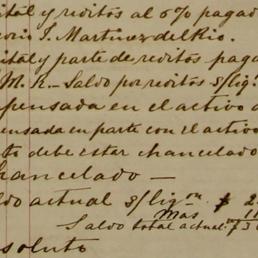 ital y reditos al 6% pagad
orio J. Martinez del Rio.
ital y parte de reditos paga
M. R — Saldo por reditos s/lig.
pensada en el activo d
ensada en parte con el activo
to debe estar chancelado
chancelado —
do actual s/lign $ 2
Mas 11
Saldo total actual " $ 3
soluto